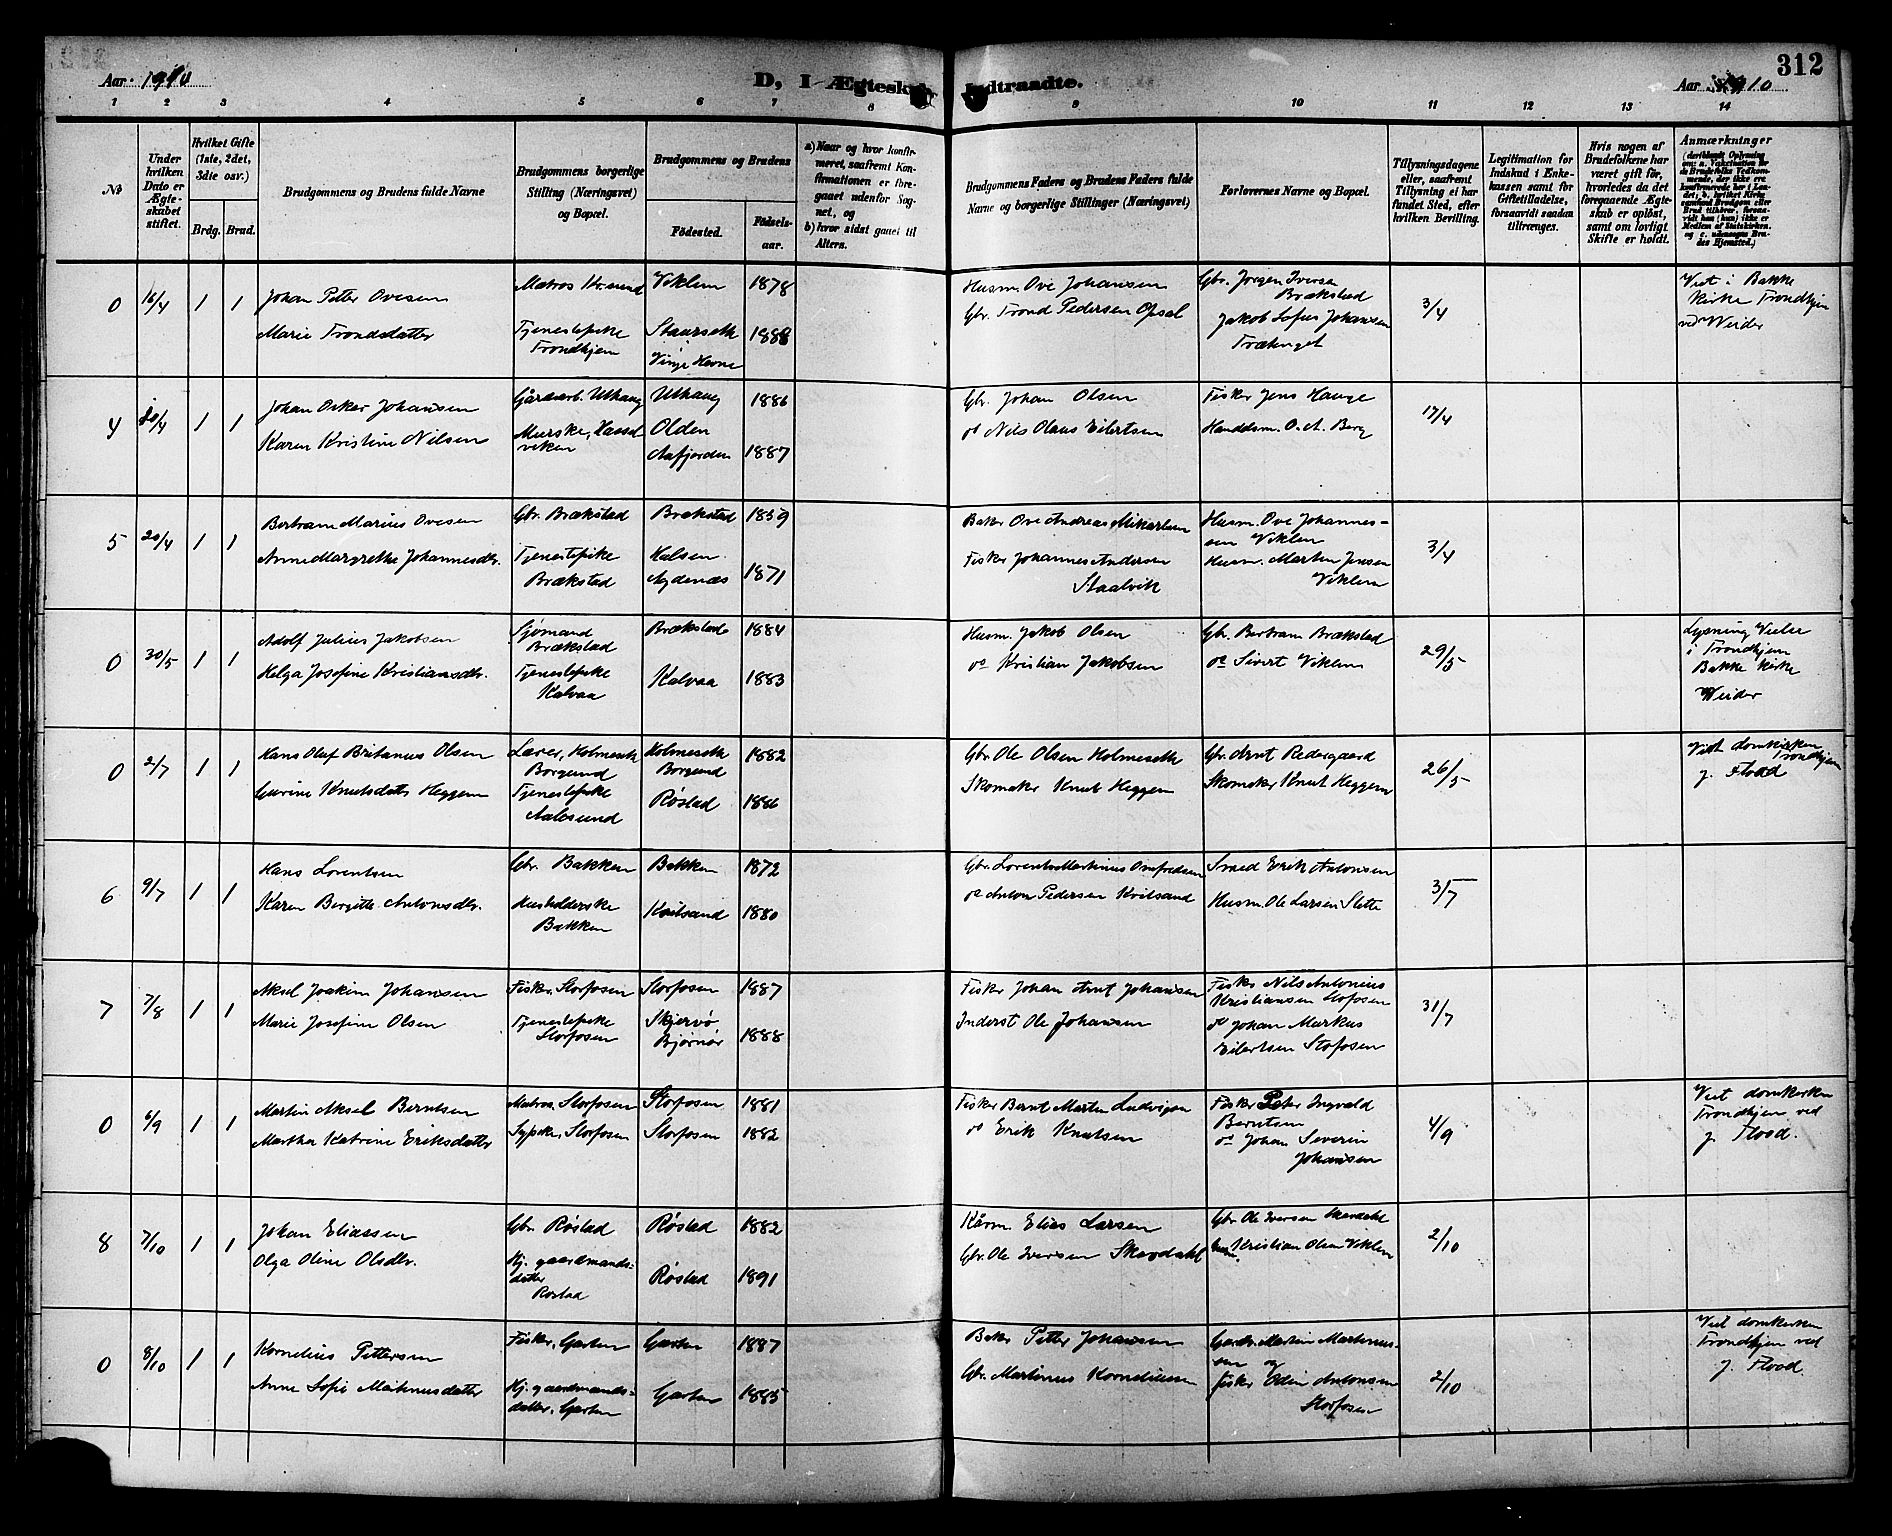 312
Aar 1910
D, I Ægteskab Indtraadte.
Aar 1910
1 2 3 4 5 6 7 8 9 10 11 12 13 14
№
Under hvilken Dato er Ægteskabet stiftet.
Hvilket Gifte (1ste, 2det, 3die osv.)
Brdg. Brud.
Brudgommens og Brudens fulde Navne
Brudgommens borgerlige Stilling (Næringsvei) og Bopæl.
Brudgommens og Brudens
Fødested.
Fødselsaar.
a) Naar og hvor konfirmeret, saafremt Konfirmationen er foregaaet udenfor Sognet, og
b) hvor sidst gaaet til Alters.
Brudgommens Faders og Brudens Faders fulde Navne og borgerlige Stillinger (Næringsvei)
Forlovernes Navne og Bopæl.
Tillysningsdagene eller, saafremt Tillysning ei har fundet Sted, efter hvilken Bevilling.
Legitimation for Indskud i Enkekassen samt for Giftetilladelse, forsaavidt saadan tiltrænges.
Hvis nogen af Brudefolkene har været gift før, hvorledes da det foregaaende Ægteskab er opløst, samt om lovligt Skifte er holdt.
Anmærkninger
0 16/4 1 1
Johan Petter Ovesen
Marie Trondsdatter
Matros Kr.sund
Tjenestepike
Trondhjem
Viklem 1878
Staurseth 1888
Vinje Hevne
Husm. Ove Johansen
Gbr. Trond Pedersen Opsal
Gbr. Jørgen Iversen
Brækstad
Jakob Sofus Johansen
3/4
Viet i Bakke
Kirke Trondhjem
ved Weider
4 20/4 1 1
Johan Oskar Johansen
Karen Kristine Nilsen
Gårdarb. Uthaug
Uthaug 1886
Olden
Aafjorden 1887
Gbr. Johan Olsen
do Nils Olaus Eilertsen
Fisker Jens Hauge
Handelsm. O. A. Berg
17/4
5 20/4 1 1
Bertram Marius Ovesen
Anne Margrethe Johannesdtr.
Gbr. Brækstad
Tjenestepike
Brækstad
Brækstad 1859
1871
Baker Ove Andreas Mikaelsen
Fisker Johannes Andersen
Staalvik
Husm. Ove Johannessen Viklem
Husm. Martin Jensen
Viklem
3/4
0 30/5 1 1
Adolf Julius Jakobsen
Helga Josefine Kristiansdtr.
Sjømand
Brækstad
Tjenestepike
Kalvaa
Brækstad 1884
Kalvaa 1883
Husm. Jakob Olsen
do Kristian Jakobsen
Gbr. Bertram Brækstad
do Sivert Viklem
29/5
Lysning Vielse
i Trondhjem
Bakke Kirke
Weider
0 2/7 1 1
Hans Oluf Britanus Olsen
Gurine Knutsdatter Heggem
Lærer, Holmeseth
Borgund
Tjenestepike
Aalesund
Holmeseth 1882
Borgund
Røstad 1886
Gbr Ole Olsen Holmeseth
Skomaker Knut Heggem
Gbr. Arnt Redergaard
Skomaker Knut Heggem
26/5
Viet domkirken
Trondhjem
J. Flood
6 9/7 1 1
Hans Lorentsen
Karen Bergitte Antonsdtr.
Gbr. Bakken
Husholderske
Bakken
Bakken 1872
Kvilsand 1880
Gbr. Lorents Martinus Onfredsen
do Anton Pedersen Kvilsand
Smed Erik Antonsen
Husm. Ole Larsen Slette
3/7
7 7/8 1 1
Aksel Joakim Johansen
Marie Josefine Olsen
Fisker, Storfosen
Tjenestepike
Storfosen
Storfosen 1887
Skjervø
Bjørnør 1888
Fisker Johan Arnt Johansen
Inderst Ole Johansen
Fisker Nils Antonius
Kristiansen Storfosen
do Johan Markus
Eilertsen Storfosen
31/7
0 6/9 1 1
Martin Aksel Berntsen
Martha Katrine Eriksdatter
Matros, Storfosen
Sypike, Storfosen
Storfosen 1881
Storfosen 1882
Fisker Bernt Martin Ludvigsen
do Erik Knutsen
Fisker Peter Ingvald
Berntsen
do Johan Severin
Johansen
4/9
Viet domkirken
Trondhjem ved
J. Flood.
8 7/10 1 1
Johan Eliassen
Olga Oline Olsdtr.
Gbr. Røstad
Hj. gaardmandsdatter
Røstad
Røstad 1882
Røstad 1891
Kårm. Elias Larsen
Gbr. Ole Iversen Skavdahl
Gbr Ole Iversen Skavdahl
Husm. Kristian Olsen Viklem
2/10
0 8/10 1 1
Kornelius Pettersen
Anne Sofie Martinusdatter
Fisker, Garten
Hj. gaardmandsdatter, Garten
Garten 1887
Garten 1885
Baker Petter Johansen
Gbr. Martinus Korneliussen
Gaardbr. Martin Martinussen og
fisker Edin Antonsen
Storfosen
2/10
Viet domkirken
Trondhjem ved
J. Flood